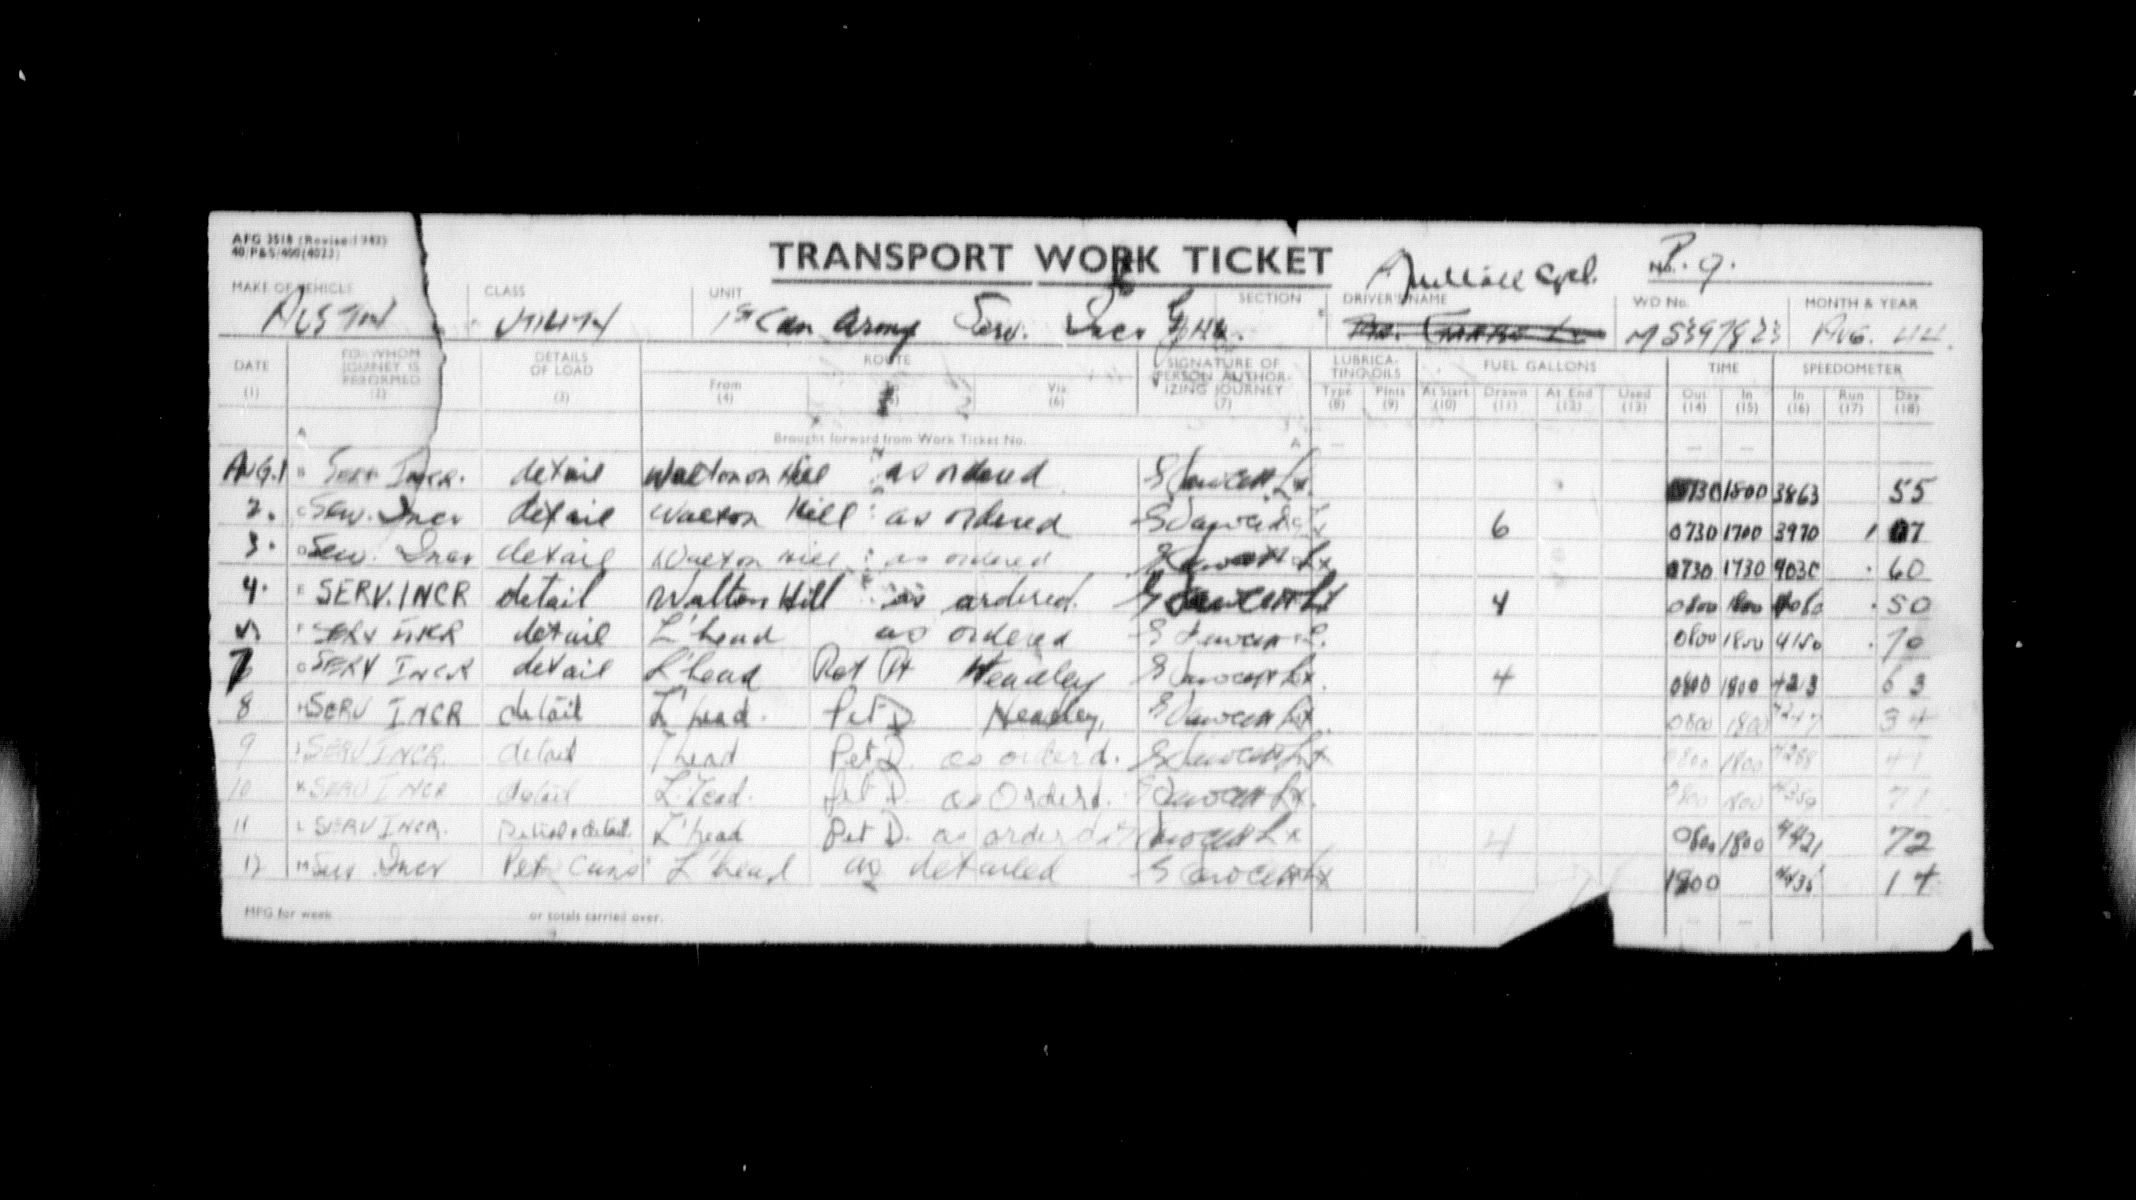 AFG 3518 (Revised 1942)
40/P&S/400(4023)
TRANSPORT WORK TICKET
No. P.9.
MAKE OF VEHICLE CLASS UNIT SECTION DRIVER'S NAME WD No. MONTH & YEAR
AUSTIN UTILITY 1st Can Army Serv. Incr Cpl. M5397823 AUG. 44.
DATE FOR WHOM JOURNEY IS PERFORMED DETAILS OF LOAD ROUTE SIGNATURE OF PERSON AUTHORIZING JOURNEY LUBRICATING OILS FUEL GALLONS TIME SPEEDOMETER
(1) (2) (3) From (4) To (5) Via (6) (7) Type (8) Pints (9) At Start (10) Drawn (11) At End (12) Used (13) Out (14) In (15) In (16) Run (17) Day (18)
A Brought forward from Work Ticket No. A
AUG.1 B Serv Incr. detail Walton on Hill as ordered 0730 1500 3863 55
2. C Serv. Incr detail Walton Hill as ordered 6 0730 1700 3970 107
3. D Serv. Incr detail Walton Hill as ordered 0730 1730 4030 60
4. E SERV. INCR detail Walton Hill as ordered. 4 0800 1800 4080 50
F SERV INCR detail L'head as ordered 0800 1800 4150 70
7 G SERV INCR detail L'head Headley 4 0800 1800 4213 63
8 H SERV INCR detail L'head. Pet D. Headley. 0800 1800 4247 34
9 J SERV INCR. detail L'head Pet D. as order'd. 0800 1800 4288 41
10 K SERV INCR detail Pet D. as Order'd. 0800 1800 71
11 L SERV INCR. L'head Pet D. as order'd 4 0800 1800 4421 72
12 M Serv Incr Pet Cans L'head as detailed 1800 14
MPG for week or totals carried over.